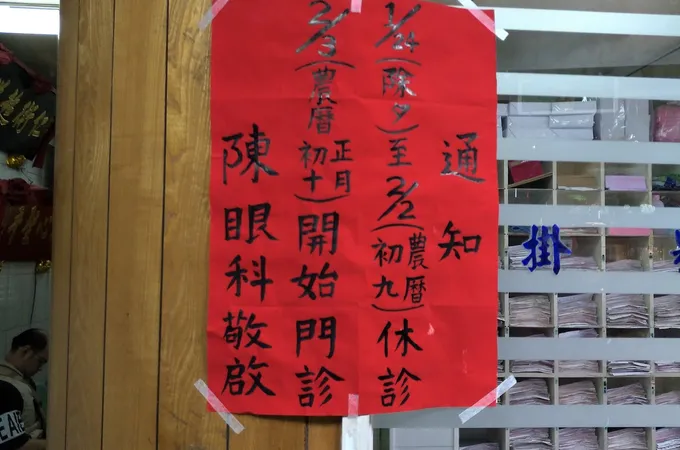 通知
1/24(除夕)至2/2(農曆初九)休診
2/3(農曆正月初十)開始門診
陳眼科敬啟
掛